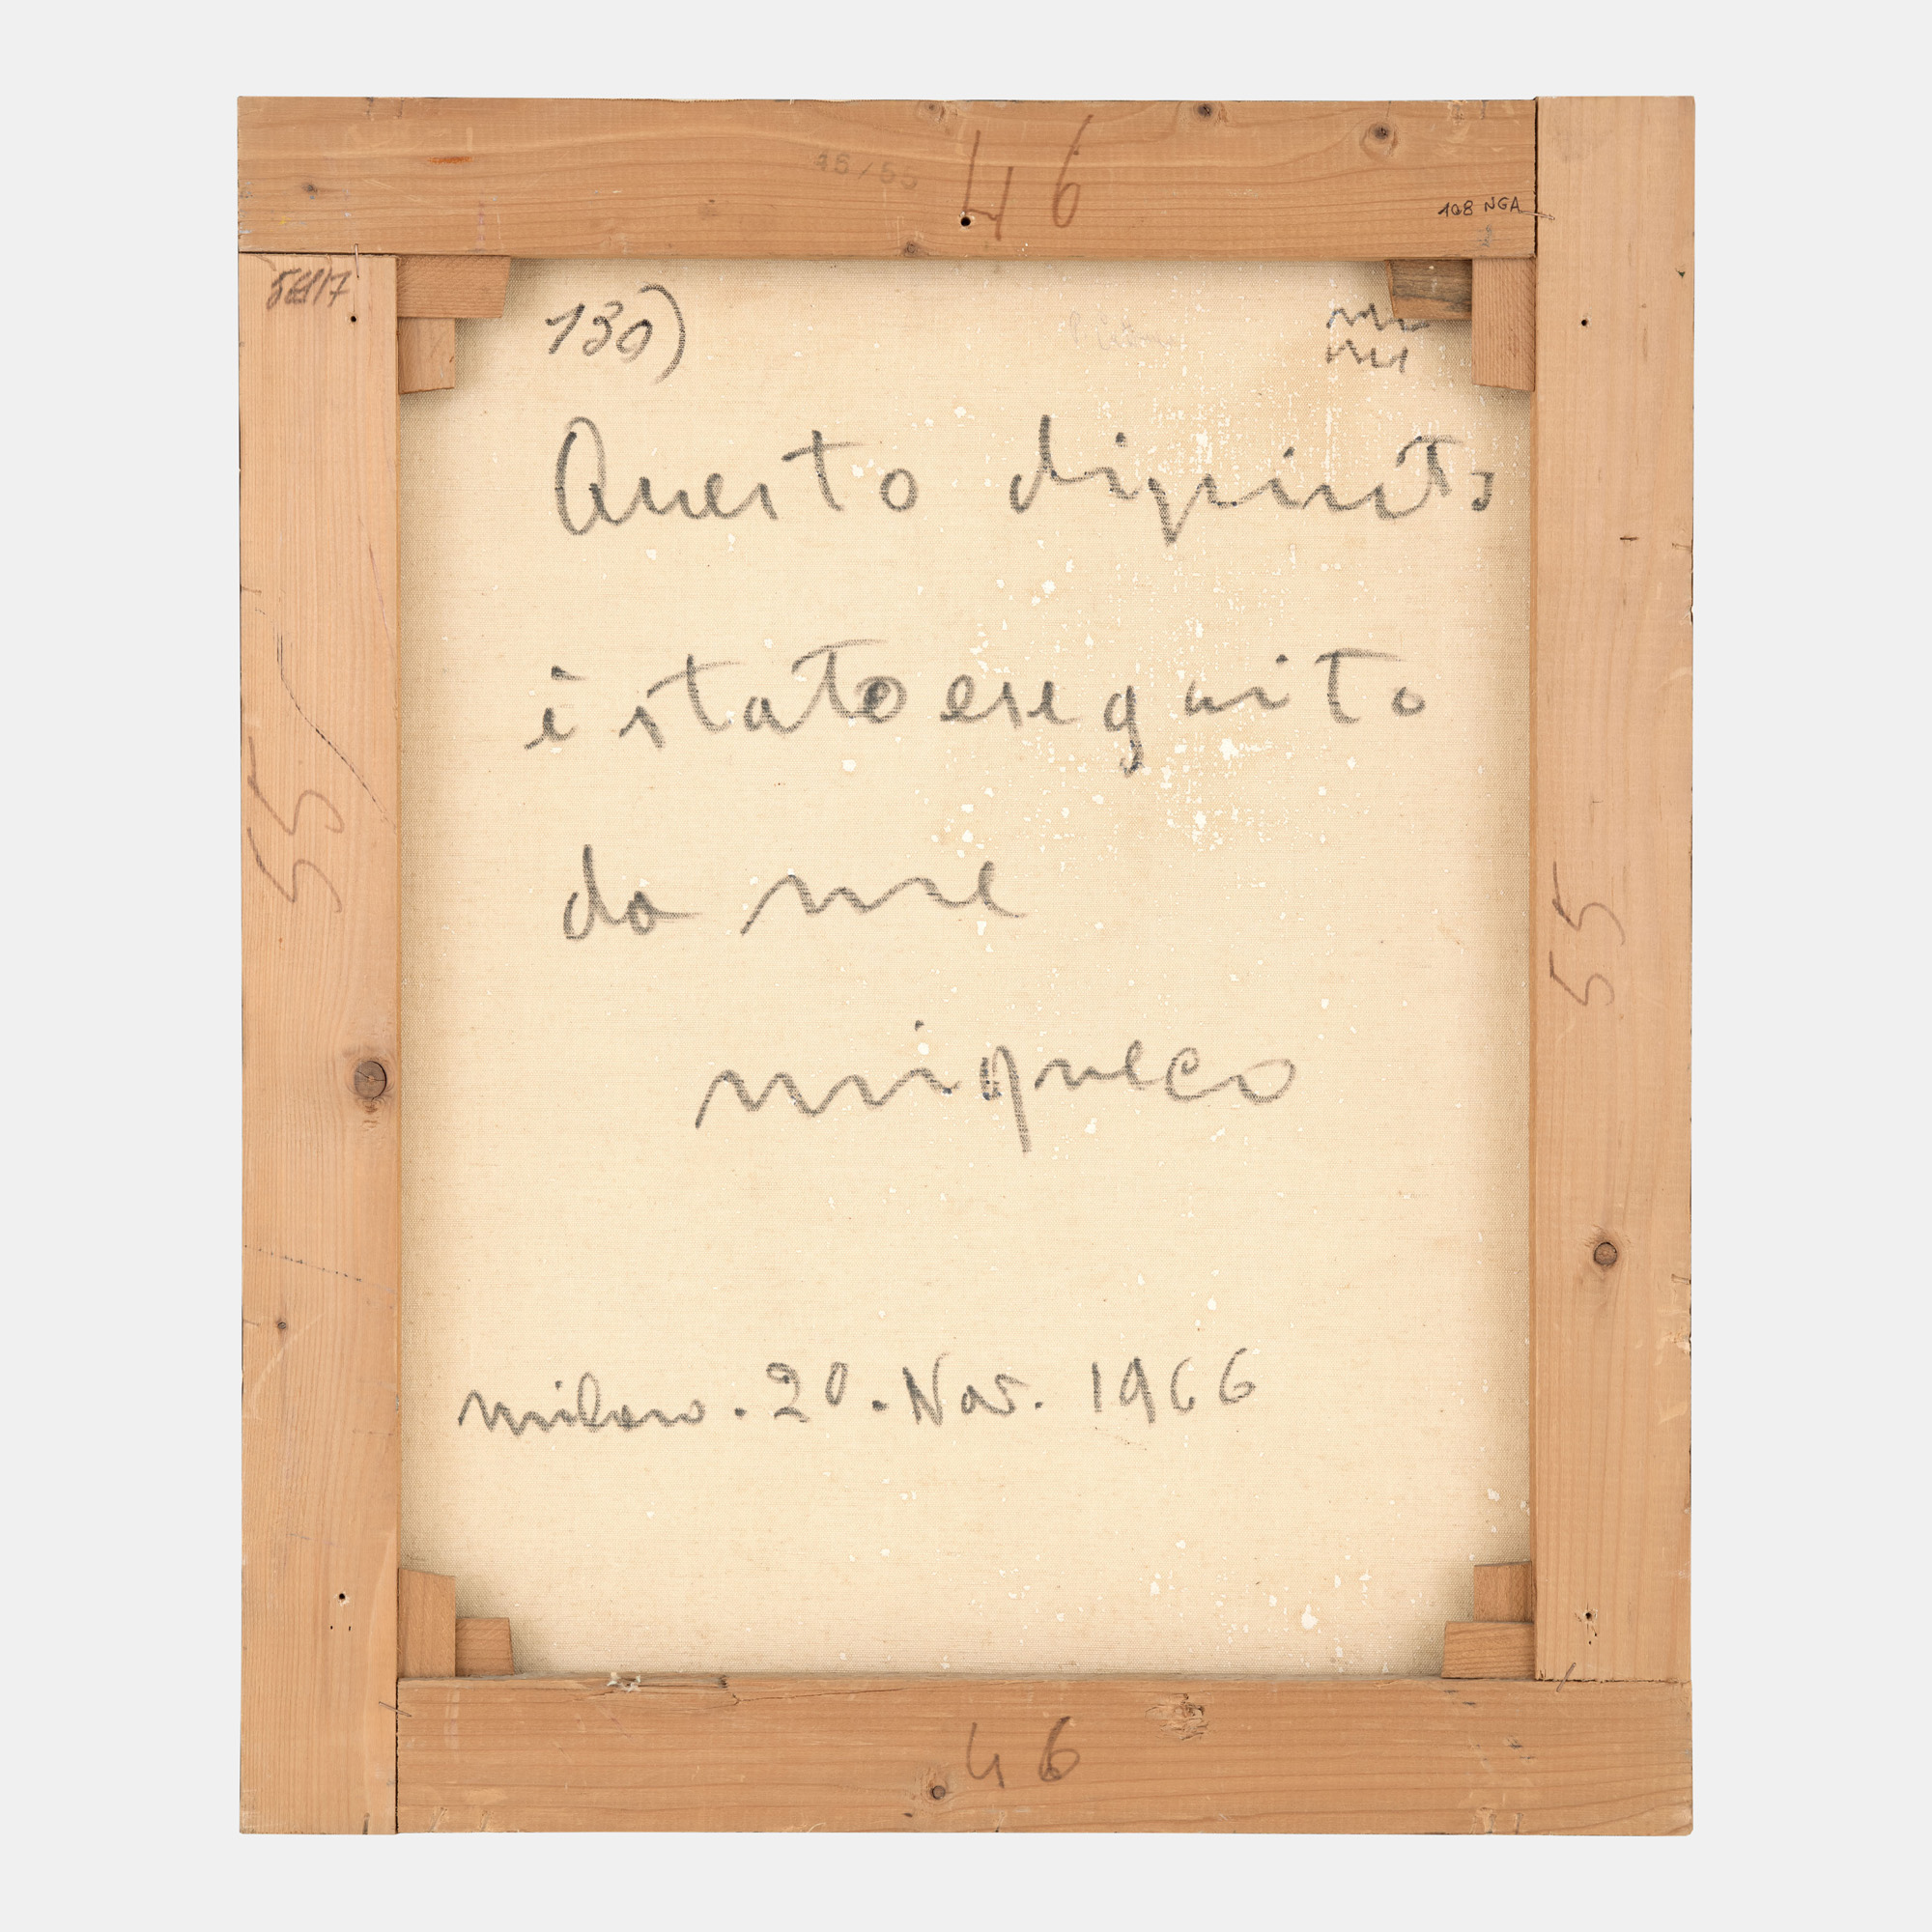 46/55
46
108 NGA
130)
Questo dipinto
è stato eseguito
da me
migneco
55
55
milano. 20. Nov. 1966
46